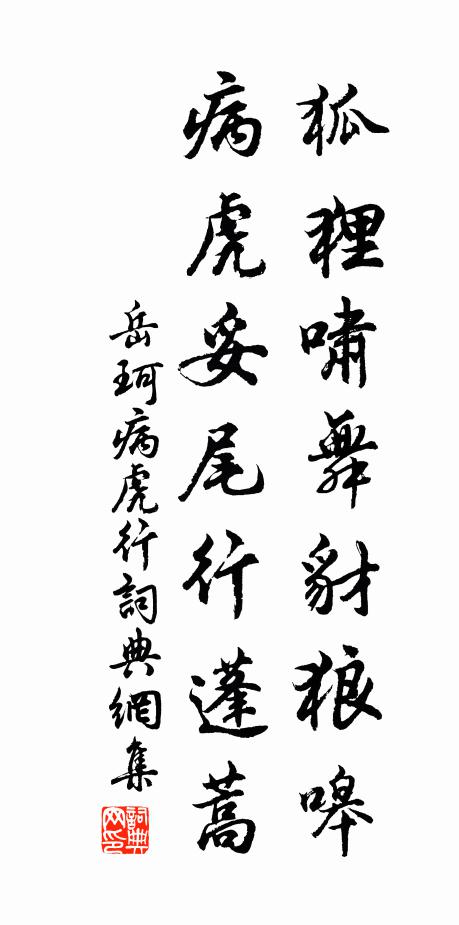 狐狸啸舞豺狼嗥
病虎妥尾行蓬蒿
岳珂病虎行詞典網集
詞典网印